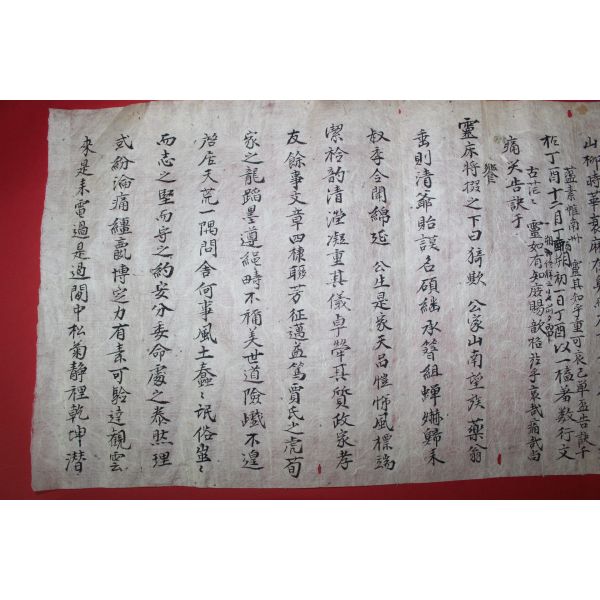 山柳時華衰麻在
蓋素惟南州 靈其知乎重可哀已單盃告訣于
柩丁酉十二月丁酉朔初一日丁酉以一榼薄數行文
痛哭告訣于
靈如有知庶賜歆格 於乎哀哉痛哉尚
饗
靈床將掇之下曰猗歟 公家山南望族 藥翁
垂則清爺貽謨名碩繼承簪組蟬嫣歸來
叔季令聞綿延 公生是家天品愷悌風標端
潔衿韵清瀅凝重其儀卓犖其質政家孝
友餘事文章四棣聯芳征邁益篤賈氏之虎荀
家之龍蹈墨遵繩疇不稱美世道險巇不遑
啓居天荒一隅問舍何事風土蠢蠢氓俗蚩蚩
而志之堅而守之約安分委命處之泰然理
式紛淪痛纏羸博定力有素可驗達觀雲
來是來電過是過閒中松菊靜裡乾坤潛